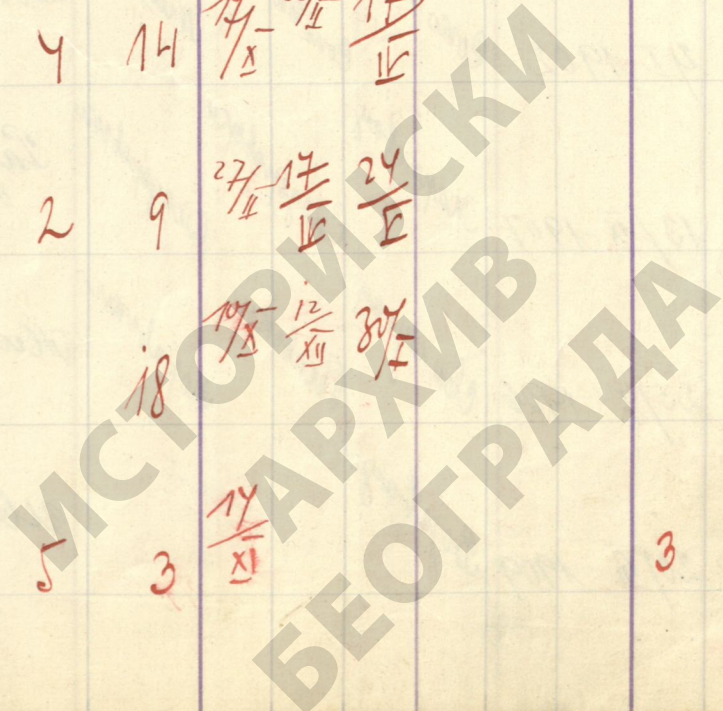 4 14 17/XI
2 9 27/II 17/VI 24/V
18 10/XI 12/XII 30/I
5 3 14/XI 3
ИСТОРИЈСКИ
АРХИВ
БЕОГРАДА